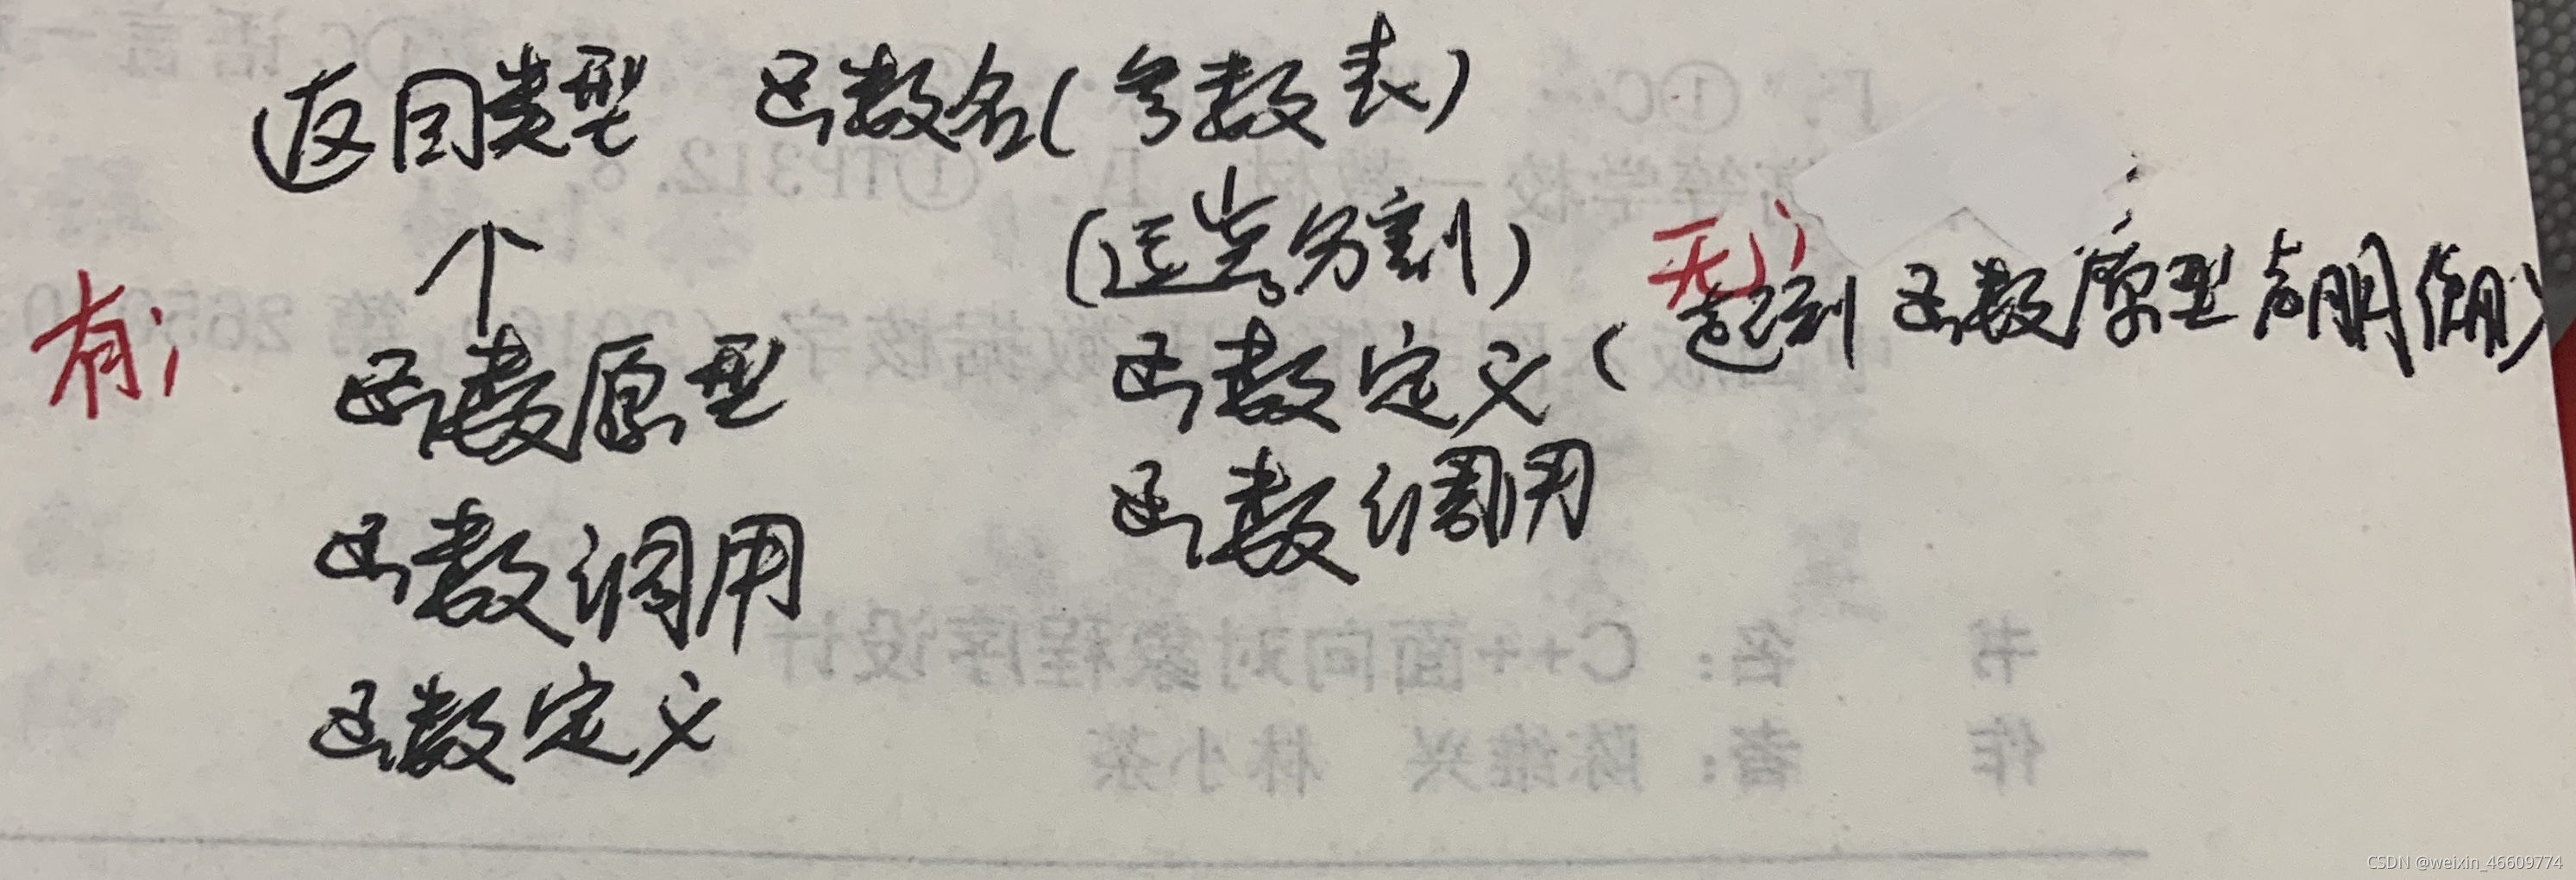 返回类型 函数名(参数表)
个
(逗号分割)
有;
无;
函数原型
函数定义(起到函数原型声明作用)
函数调用
函数调用
函数定义
书 名：C++面向对象程序设计
作 者：陈维兴 林小茶
CSDN @weixin_46609774